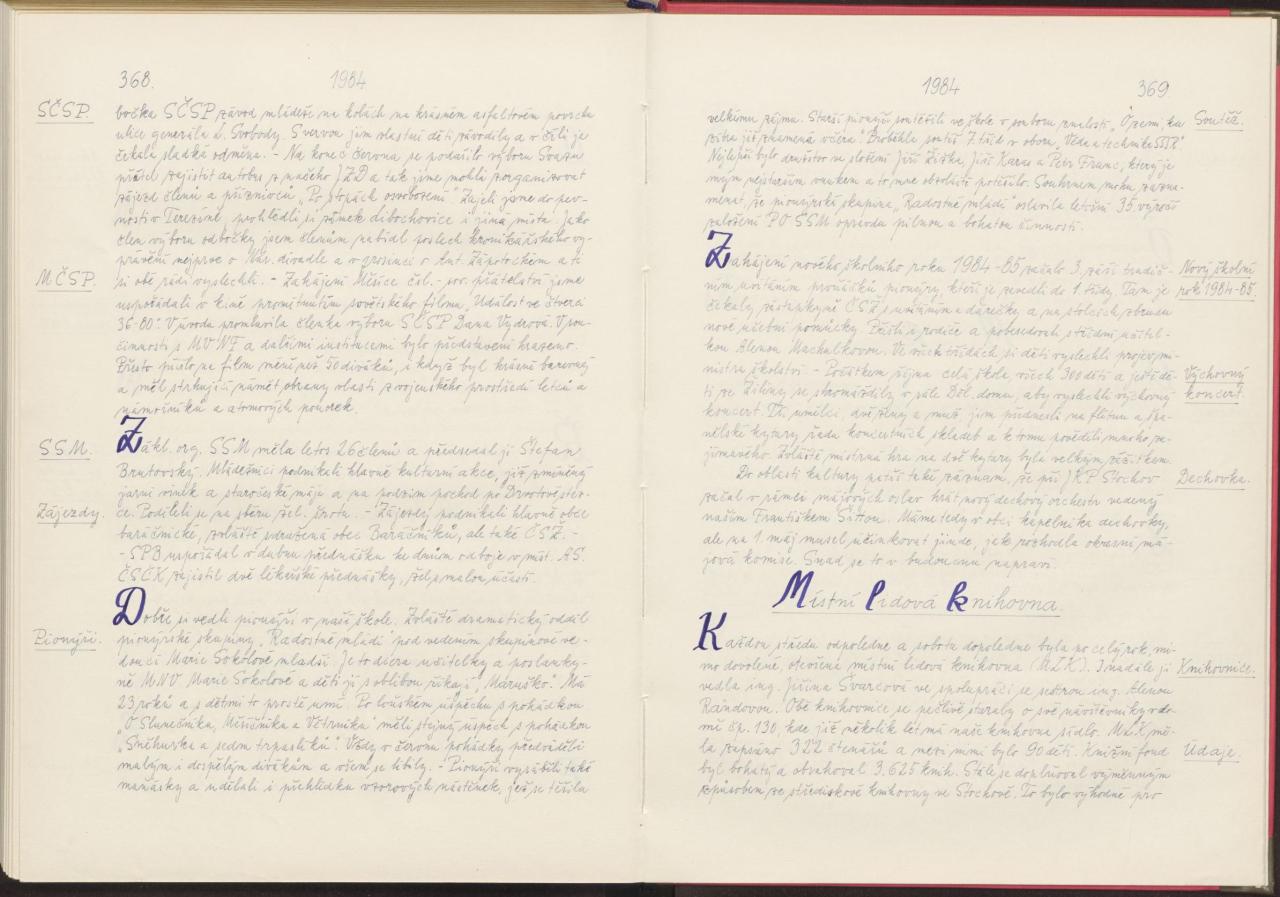 368.
1984
SČSP.
bočka SČSP závod mládeže na kolách na krásném asfaltovém povrchu
ulice generála L. Svobody. S vervou jim vlastní děti závodily a v cíli je
čekala sladká odměna. - Na konec června se podařilo výboru Svazu
přátel zajistit autobus z našeho JZD a tak jsme mohli zorganizovat
zájezd členů a příznivců „Po stopách osvobození". Zajeli jsme do pev-
nosti v Terezíně, prohlédli si zámek Libochovice i jiná místa. Jako
člen výboru odbočky jsem členům nabídl poslech kronikářského vy-
právění nejprve o Nár. divadle a v prosinci o Ant. Zápotockém a ti
MČSP.
si obě rádi vyslechli. - Zahájení Měsíce čsl.- sov. přátelství jsme
uspořádali v kině promítnutím sovětského filmu „Událost ve čtverci
36-80". V úvodu promluvila členka výboru SČSP Dana Vydrová. V sou-
činnosti s MV NF a dalšími institucemi bylo představení hrazeno.
Přesto přišlo na film méně než 50 diváků, i když byl krásně barevný
a měl strhující námět obrany vlasti z vojenského prostředí letců a
námořníků a atomových ponorek.
SSM.
Zákl. org. SSM měla letos 26 členů a předsedal jí Štefan
Brutovský. Mládežníci podnikali hlavně kulturní akce, již zmíněný
jarní výšlap a staročeské máje a na podzim pochod po Drvotově ste-
Zájezdy.
ce. Podíleli se na sběru žel. šrotu. - Zájezdy podnikali hlavně obce
baráčnické, zvláště sdružená obec Baráčníků, ale také ČSŽ. -
- SPB uspořádal v dubnu přednášku ke dnům odboje v míst. AS.
ČSČK zajistil dvě lékařské přednášky, žel s malou účastí.
Dobře si vedli pionýři v naší škole. Zvláště dramatický oddíl
Pionýři.
pionýrské skupiny „Radostné mládí" pod vedením skupinové ve-
doucí Marie Sokolové mladší. Je to dcera učitelky a poslanky-
ně MNV Marie Sokolové a děti jí s oblibou říkají „Máruško". Má
23 roků a s dětmi to prostě umí. Po loňském úspěchu s pohádkou
„O Slunečníku, Měsíčníku a Větrníku" měli stejný úspěch s pohádkou
„Sněhurka a sedm trpaslíků". Vždy v červnu pohádky předváděli
malým i dospělým divákům a všem se líbily. - Pionýři vyráběli také
maňásky a udělali i přehlídku vzorových nástěnek, jež se těšila
1984
369
velkému zájmu. Starší pionýři soutěžili ve škole v souboru znalostí „O zemi, kde
Soutěž.
zítra již znamená včera". Proběhla soutěž 7. tříd v oboru „Věda a technika SSSR".
Nejlepší bylo družstvo ve složení Jiří Žižka, Jiří Karas a Petr Franc, který je
mým nejstarším vnukem a to mne obzvláště potěšilo. Souhrnem mohu zazna-
menat, že pionýrská skupina „Radostné mládí" oslavila letošní 35. výročí
založení PO SSM opravdu pilnou a bohatou činností.
Zahájení nového školního roku 1984-85 začalo 3. září tradič-
Nový školní
ním uvítáním prvňáčků pionýry, kteří je zavedli do 1. třídy. Tam je
rok 1984-85.
čekaly zástupkyně ČSŽ s uvítáním a dárečky a na stolcích zbrusu
nové učební pomůcky. Děti i rodiče a pobesedovali s třídní učitel-
kou Alenou Machalkovou. Ve všech třídách si děti vyslechli projev mi-
nistra školství. - Počátkem října celá škola, všech 300 dětí a ještě dě-
Výchovný
ti ze Žiliny se shromáždily v sále Děl. domu, aby vyslechli výchovný
koncert.
koncert. Tři umělci, dvě ženy a muž jim přednesli na flétnu a špa-
nělské kytary řadu koncertních skladeb a k tomu pověděli mnoho za-
jímavého. Zvláště mistrná hra na dvě kytary byla velkým zážitkem.
Do oblasti kultury patří také záznam, že při JKP Stochov
Dechovka.
začal v rámci májových oslav hrát nový dechový orchestr vedený
naším Františkem Šittou. Máme tedy v obci kapelníka dechovky,
ale na 1. máj musel účinkovat jinde, jak rozhodla okresní má-
jová komise. Snad se to v budoucnu napraví.
Místní lidová knihovna.
Každou středu odpoledne a sobotu dopoledne byla po celý rok, mi-
mo dovolené, otevřena místní lidová knihovna (MLK). I nadále ji
Knihovnice.
vedla ing. Jiřina Švarcová ve spolupráci se sestrou ing. Alenou
Rándovou. Obě knihovnice se pečlivě staraly o své návštěvníky v do-
mě čp. 130, kde již několik let má naše knihovna sídlo. MLK mě-
la zapsáno 322 čtenářů a mezi nimi bylo 90 dětí. Knižní fond
Údaje.
byl bohatý a obsahoval 3.625 knih. Stále se doplňoval výměnným
způsobem ze střediskové knihovny ve Stochově. To bylo výhodné pro